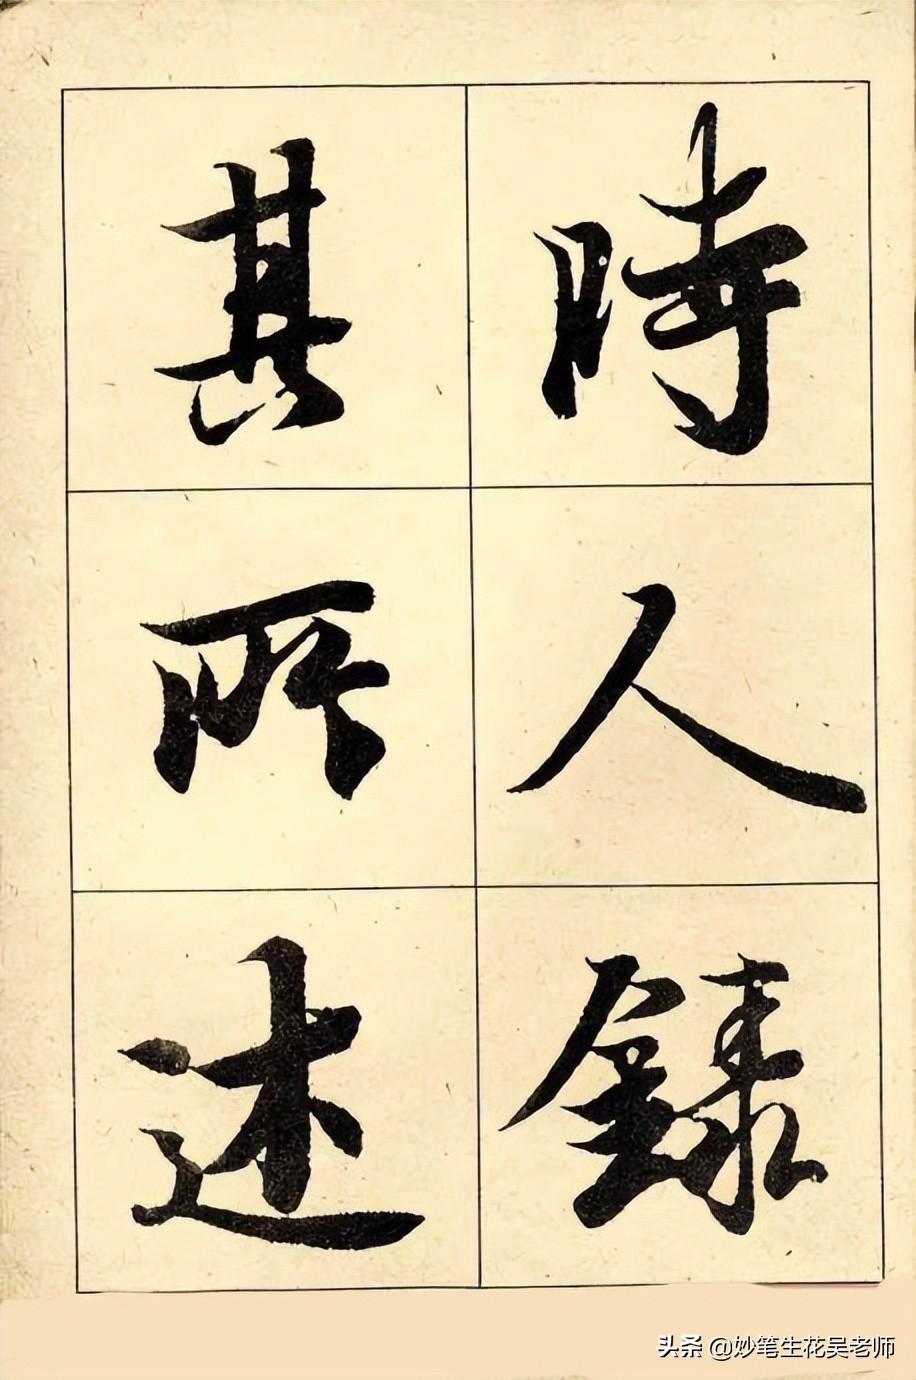 時人錄
其所述
头条 @妙笔生花吴老师